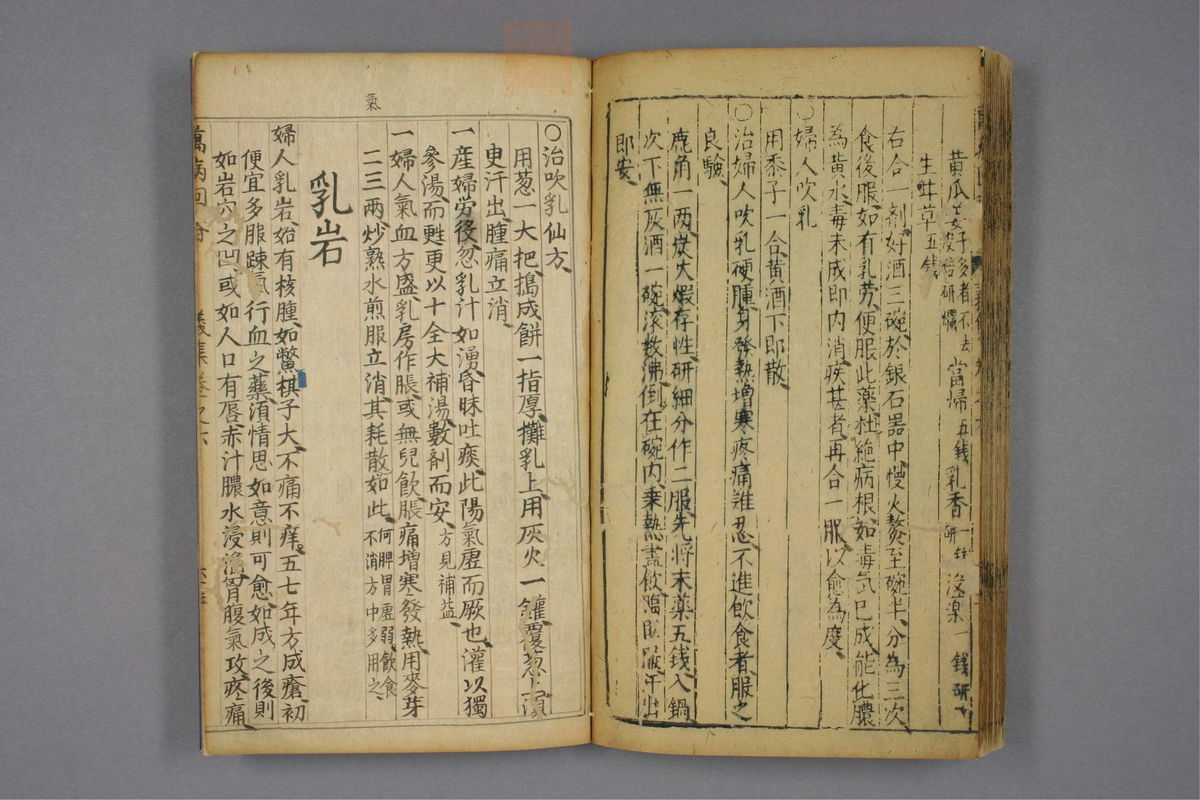 黄瓜蔞子多者不去殼焙研爛 當歸五錢 乳香一錢研 沒藥一錢研
生甘草五錢
右合一劑好酒三碗於銀石器中慢火熬至碗半分為三次
食後服如有乳勞便服此藥杜絶病根如毒氣已成能化膿
為黄水毒未成即内消疾甚者再合一服以愈為度
○婦人吹乳
用黍子一合黄酒下即散
○治婦人吹乳硬腫身發熱增寒疼痛難忍不進飲食者服之
良驗
鹿角一两炭火煆存性研細分作二服先將末藥五錢入鍋
次下無灰酒一碗滚数沸倒在碗内乗熱盡飲臨臥服汗出
即安
氣
○治吹乳仙方
用葱一大把搗成餅一指厚攤乳上用灰火一罐覆葱上須
臾汗出腫痛立消
一産婦勞後忽乳汁如湧昏昧吐痰此陽氣虛而厥也灌以獨
參湯而甦更以十全大補湯數劑而安方見補益
一婦人氣血方盛乳房作脹或無兒飲脹痛增寒發熱用麥芽
二三两炒熟水煎服立消其耗散如此何脾胃虛弱飲食不消方中多用之
乳岩
婦人乳岩始有核腫如鱉棋子大不痛不痒五七年方成瘡初
便宜多服踈氣行血之藥須情思如意則可愈如成之後則
如岩穴之凹或如人口有唇赤汁膿水浸淫胷腹氣攻疼痛
萬病回春 義集卷之六